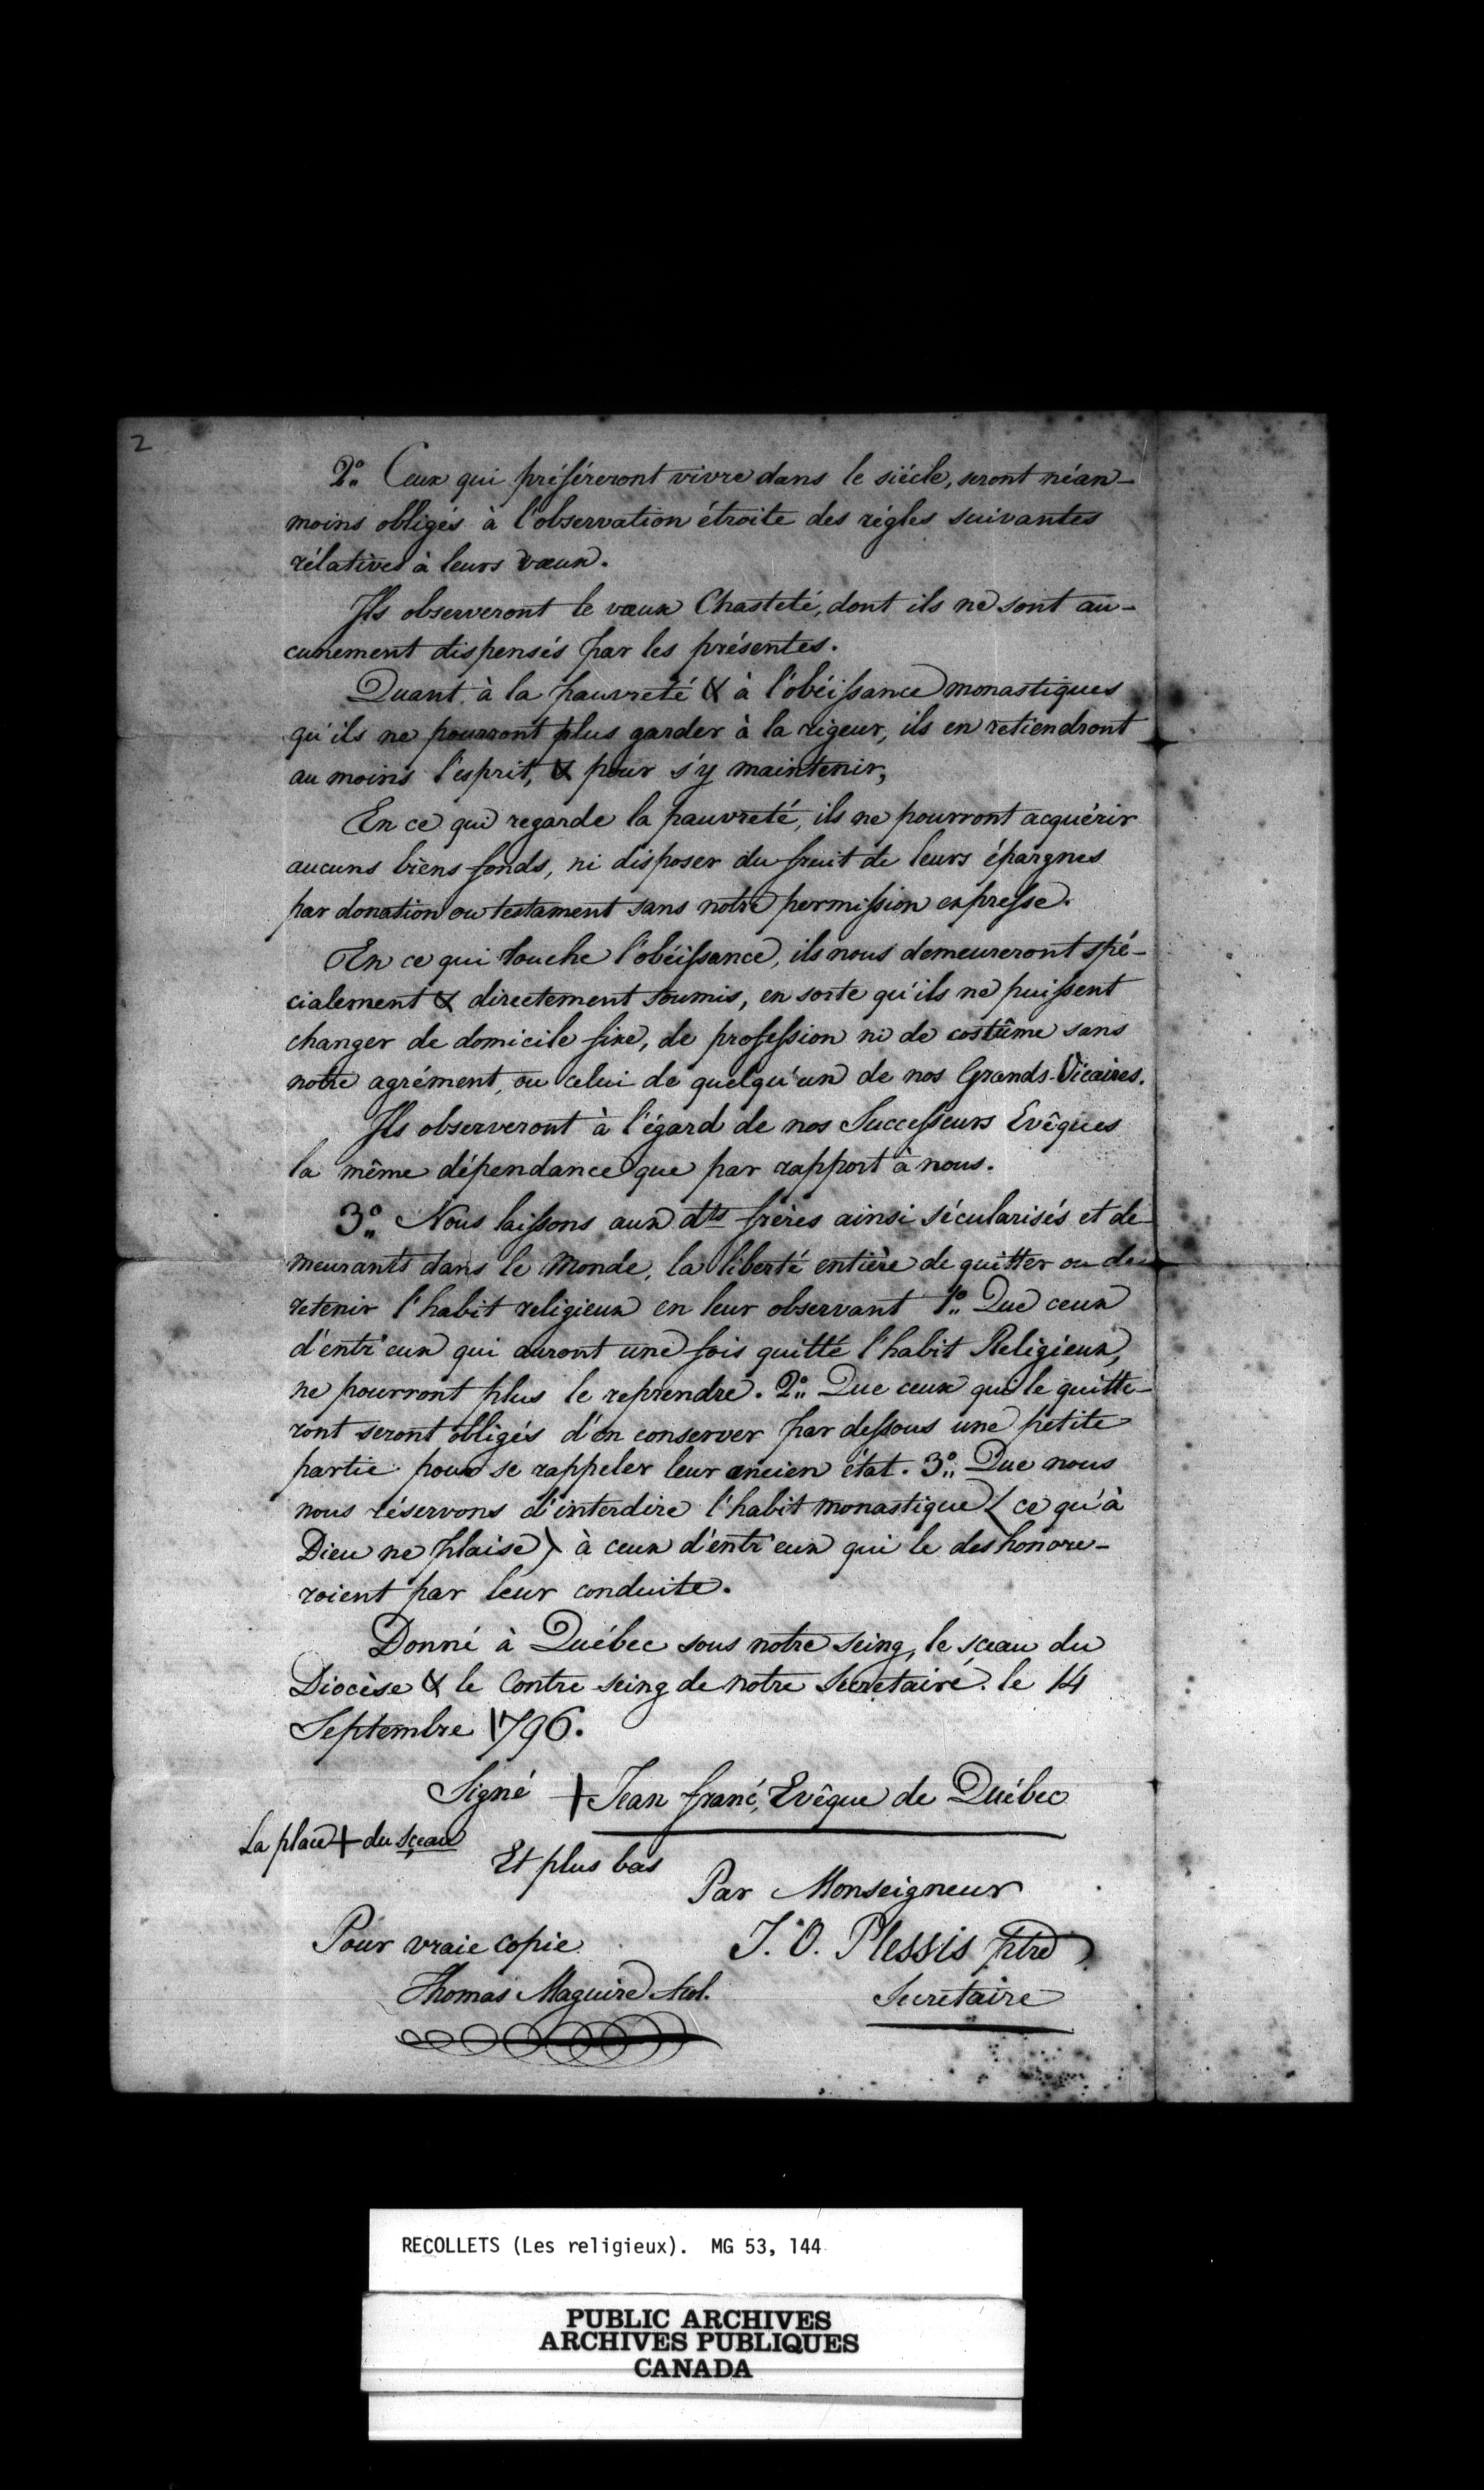 2
2°. Ceux qui préféreront vivre dans le siécle, seront néan-
moins obligés à l'observation étroite des régles suivantes
rélatives à leurs vœux.
Ils observeront le vœux Chasteté, dont ils ne sont au-
cunement dispensés par les présentes.
Quant à la pauvreté & à l'obéissance monastiques
qu'ils ne pourront plus garder à la rigeur, ils en retiendront
au moins l'esprit, & pour s'y maintenir,
En ce qui regarde la pauvreté, ils ne pourront acquérir
aucuns biens-fonds, ni disposer du fruit de leurs épargnes
par donation ou testament sans notre permission expresse.
En ce qui touche l'obéissance, ils nous demeureront spé-
cialement & directement soumis, en sorte qu'ils ne puissent
changer de domicile fixe, de profession ni de costûme sans
notre agrément, ou celui de quelqu'un de nos Grands-Vicaires.
Ils observeront à l'égard de nos Successeurs Evêques
la même dépendance que par rapport à nous.
3°. Nous laissons aux dts frères ainsi sécularisés et de-
meurants dans le Monde, la liberté entière de quitter ou de
retenir l'habit religieux en leur observant 1°. Que ceux
d'entr'eux qui auront une fois quitté l'habit Religieux,
ne pourront plus le reprendre. 2°. Que ceux qui le quitte-
ront seront obligés d'en conserver par dessous une petite
partie pour se rappeler leur ancien état. 3°. Que nous
nous réservons d'interdire l'habit monastique (ce qu'à
Dieu ne plaise) à ceux d'entr'eux qui le deshonore-
roient par leur conduite.
Donné à Québec sous notre seing, le sceau du
Diocèse & le Contre seing de notre Secretaire. le 14
Septembre 1796.
Signé + Jean franç, Evêque de Québec
La place + du sceau
Et plus bas
Par Monseigneur
Pour vraie copie J. O. Plessis ptre
Thomas Maguire Accol. Secretaire
RECOLLETS (Les religieux). MG 53, 144
PUBLIC ARCHIVES
ARCHIVES PUBLIQUES
CANADA